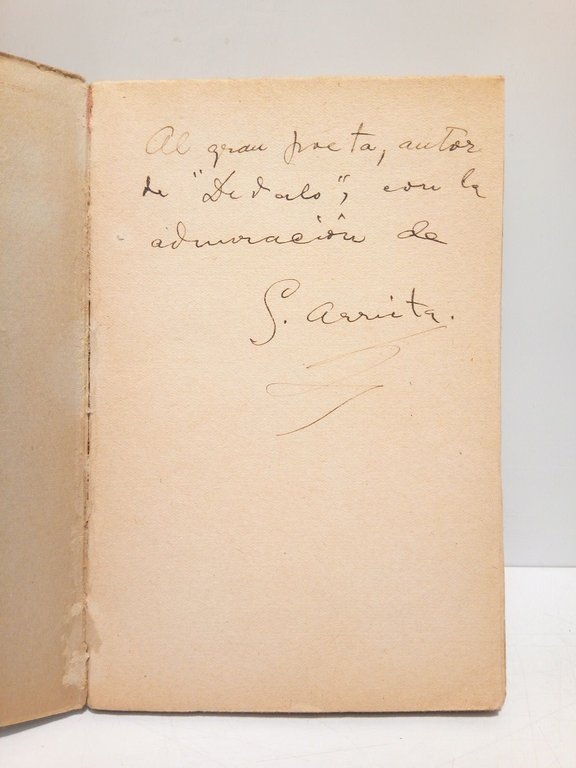 Al gran poeta, autor
de "Dedalo", con la
admiración de
S. Arrieta.